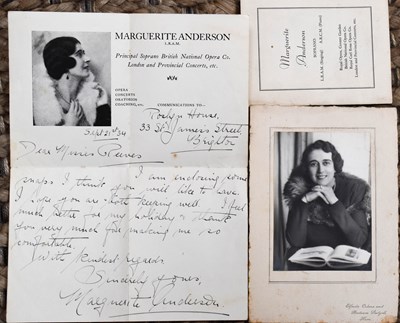 MARGUERITE ANDERSON
L.R.A.M.
Principal Soprano British National Opera Co.
London and Provincial Concerts, etc.
OPERA
CONCERTS
ORATORIOS
COACHING, etc.
COMMUNICATIONS TO
House,
33 St James's Street,
Brighton
Sept 21st 34
Dear Misses Reeves
I am enclosing some
snaps I think you will like to have.
I hope you are both keeping well. I feel
much better for my holiday & thank
you very much for making me so
comfortable.
With kindest regards
Sincerely yours,
Marguerite Anderson
Marguerite
Anderson
SOPRANO
L.R.A.M. (Singing) A.R.C.M. (Piano)
Royal Opera, Covent Garden
British National Opera Co.
Royal Carl Rosa Opera Co.